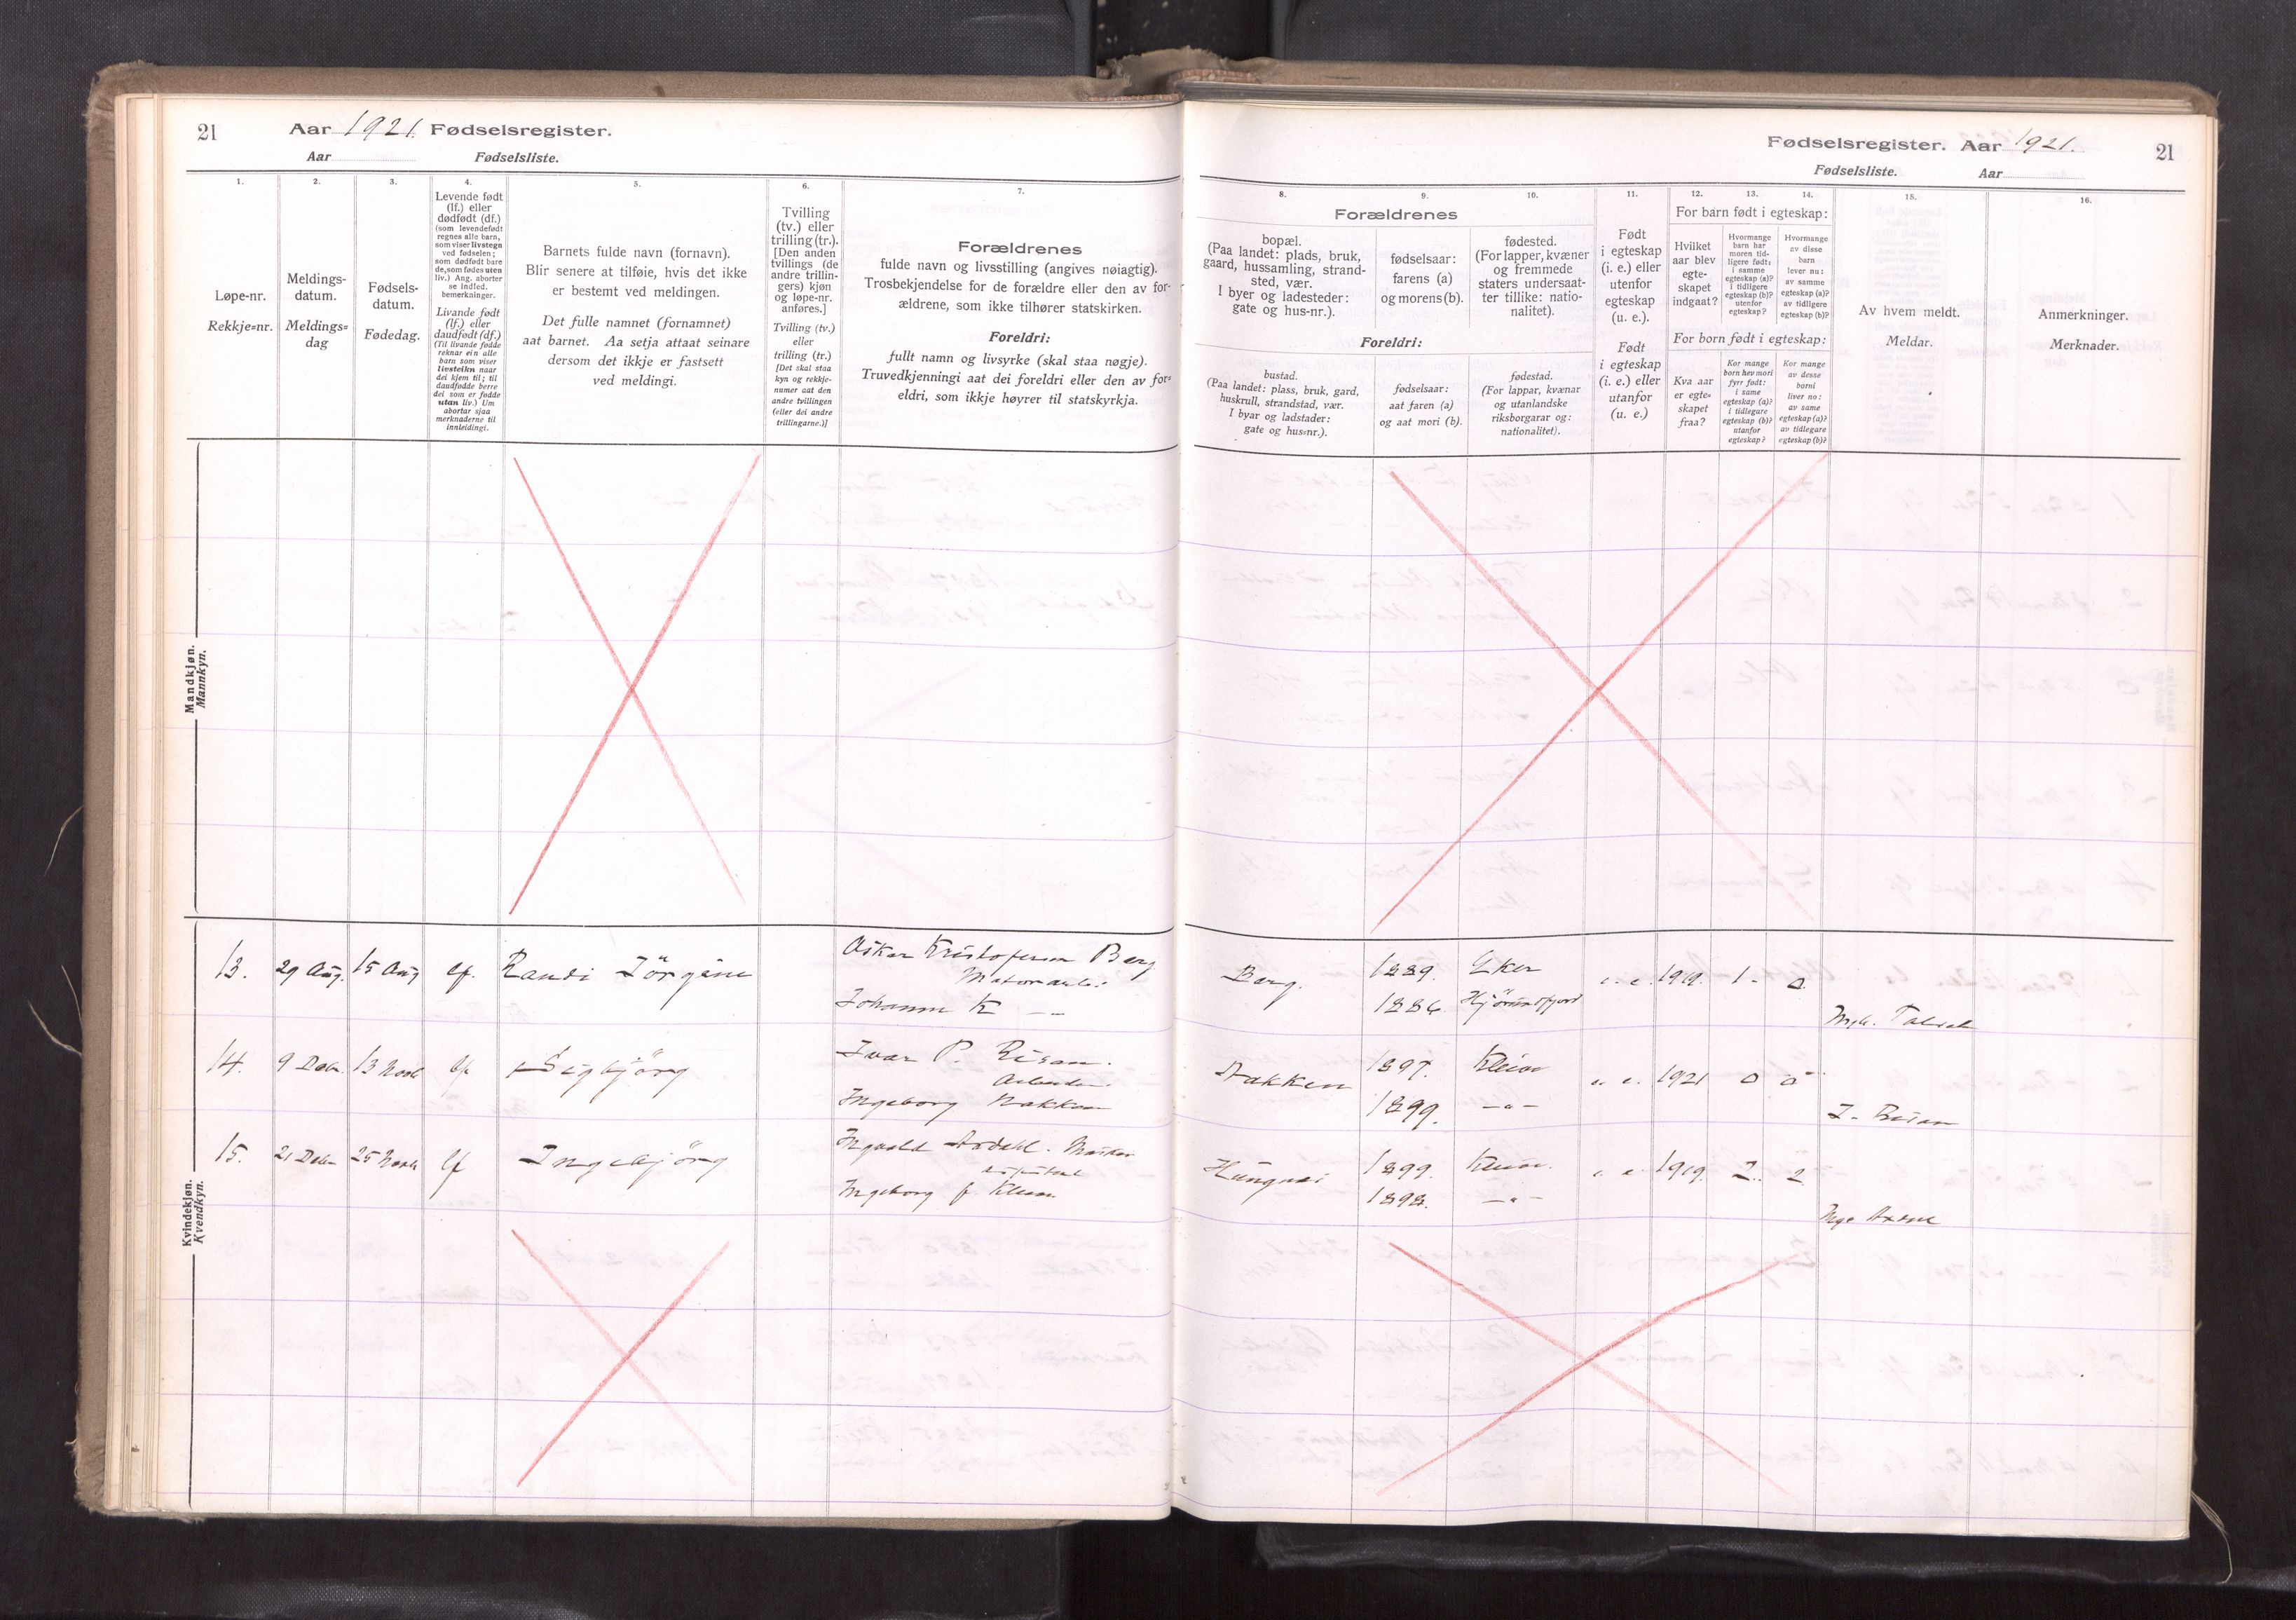 21
Aar 1921. Fødselsregister.
Aar Fødselsliste.
1.
2.
3.
4.
5.
6.
7.
Løpe-nr.
Rekkje=nr.
Meldings-
datum.
Meldings=
dag
Fødsels-
datum.
Fødedag.
Levende født
(lf.) eller
dødfødt (df.)
(som levendefødt
regnes alle barn,
som viser livstegn
ved fødselen;
som dødfødt bare
de, som fødes uten
liv.) Ang. aborter
se indled.
bemerkninger.
Livande født
(lf.) eller
daudfødt (df.)
(Til livande fødde
reknar ein alle
barn som viser
livsteikn naar
dei kjem til; til
daudfødde berre
dei som er fødde
utan liv.) Um
abortar sjaa
merknaderne til
innleidingi.
Barnets fulde navn (fornavn).
Blir senere at tilføie, hvis det ikke
er bestemt ved meldingen.
Det fulle namnet (fornamnet)
aat barnet. Aa setja attaat seinare
dersom det ikkje er fastsett
ved meldingi.
Tvilling
(tv.) eller
trilling (tr.).
[Den anden
tvillings (de
andre trillin-
gers) kjøn
og løpe-nr.
anføres.]
Tvilling (tv.)
eller
trilling (tr.)
[Det skal staa
kyn og rekkje-
numer aat den
andre tvillingen
(eller dei andre
trillingarne.)]
Forældrenes
fulde navn og livsstilling (angives nøiagtig).
Trosbekjendelse for de forældre eller den av for-
ældrene, som ikke tilhører statskirken.
Foreldri:
fullt namn og livsyrke (skal staa nøgje).
Truvedkjenningi aat dei foreldri eller den av for=
eldri, som ikkje høyrer til statskyrkja.
Mandkjøn.
Mannkyn.
13. 29 Aug. 15 Aug lf. Randi Jörgine
Oskar Kristofersen Berg
Johanne K — —
14. 9 Debr. 13 Novb lf Sigbjörg
Ivar P. Risan.
Arbeider.
Ingeborg Nakken
15. 21 Debr 25 Novb lf Ingebjörg
Ingvald
Ingeborg f.
Kvindekjøn.
Kvendkyn.
Fødselsregister. Aar 1921.
21
Fødselsliste. Aar
8.
9.
10.
11.
12.
13.
14.
15.
16.
Forældrenes
bopæl.
(Paa landet: plads, bruk,
gaard, hussamling, strand-
sted, vær.
I byer og ladesteder:
gate og hus-nr.).
fødselsaar:
farens (a)
og morens (b).
fødested.
(For lapper, kvæner
og fremmede
staters undersaat-
ter tillike: natio-
nalitet).
Foreldri:
bustad.
(Paa landet: plass, bruk, gard,
huskrull, strandstad, vær.
I byar og ladstader:
gate og hus=nr.).
fødselsaar:
aat faren (a)
og aat mori (b).
fødestad.
(For lappar, kvænar
og utanlandske
riksborgarar og:
nationalitet).
Født
i egteskap
(i. e.) eller
utenfor
egteskap
(u. e.).
Født
i egteskap
(i. e.) eller
utanfor
(u. e.)
For barn født i egteskap:
Hvilket
aar blev
egte-
skapet
indgaat?
Hvormange
barn har
moren tid-
ligere født:
i samme
egteskap (a)?
i tidligere
egteskap (b)?
utenfor
egteskap?
Hvormange
av disse
barn
lever nu:
av samme
egteskap (a)?
av tidligere
egteskap (b)?
For born født i egteskap:
Kva aar
er egte=
skapet
fraa?
Kor mange
born hev mori
fyrr født:
i same
egteskap (a)?
i tidlegare
egteskap (b)?
utanfor
egteskap?
Kor mange
av desse
borni
liver no:
av same
egteskap (a)?
av tidlegare
egteskap (b)?
Av hvem meldt.
Meldar.
Anmerkninger.
Merknader.
Berg. 1889. Eker i. e. 1919. 1 - 0
1886 Hjörundfjord
Nakken 1897. i. e. 1921 0 0
1899. — " —
I. Risan
1899. i. e. 1919. 2. 2
1898. — " —